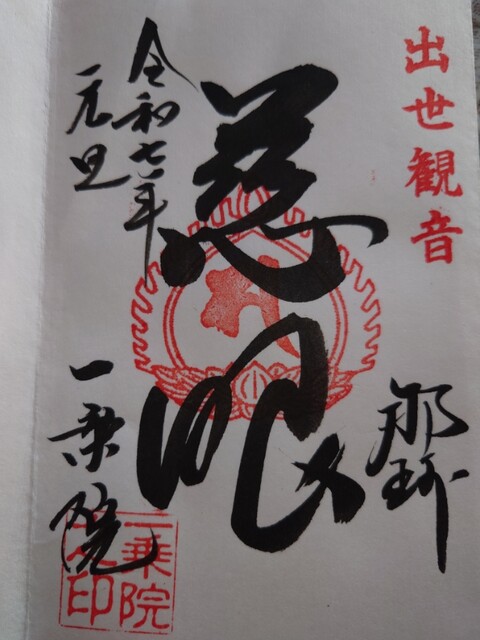 出世観音
那珂
慈眼
令和七年
元旦
一乗院
一乗院
之印